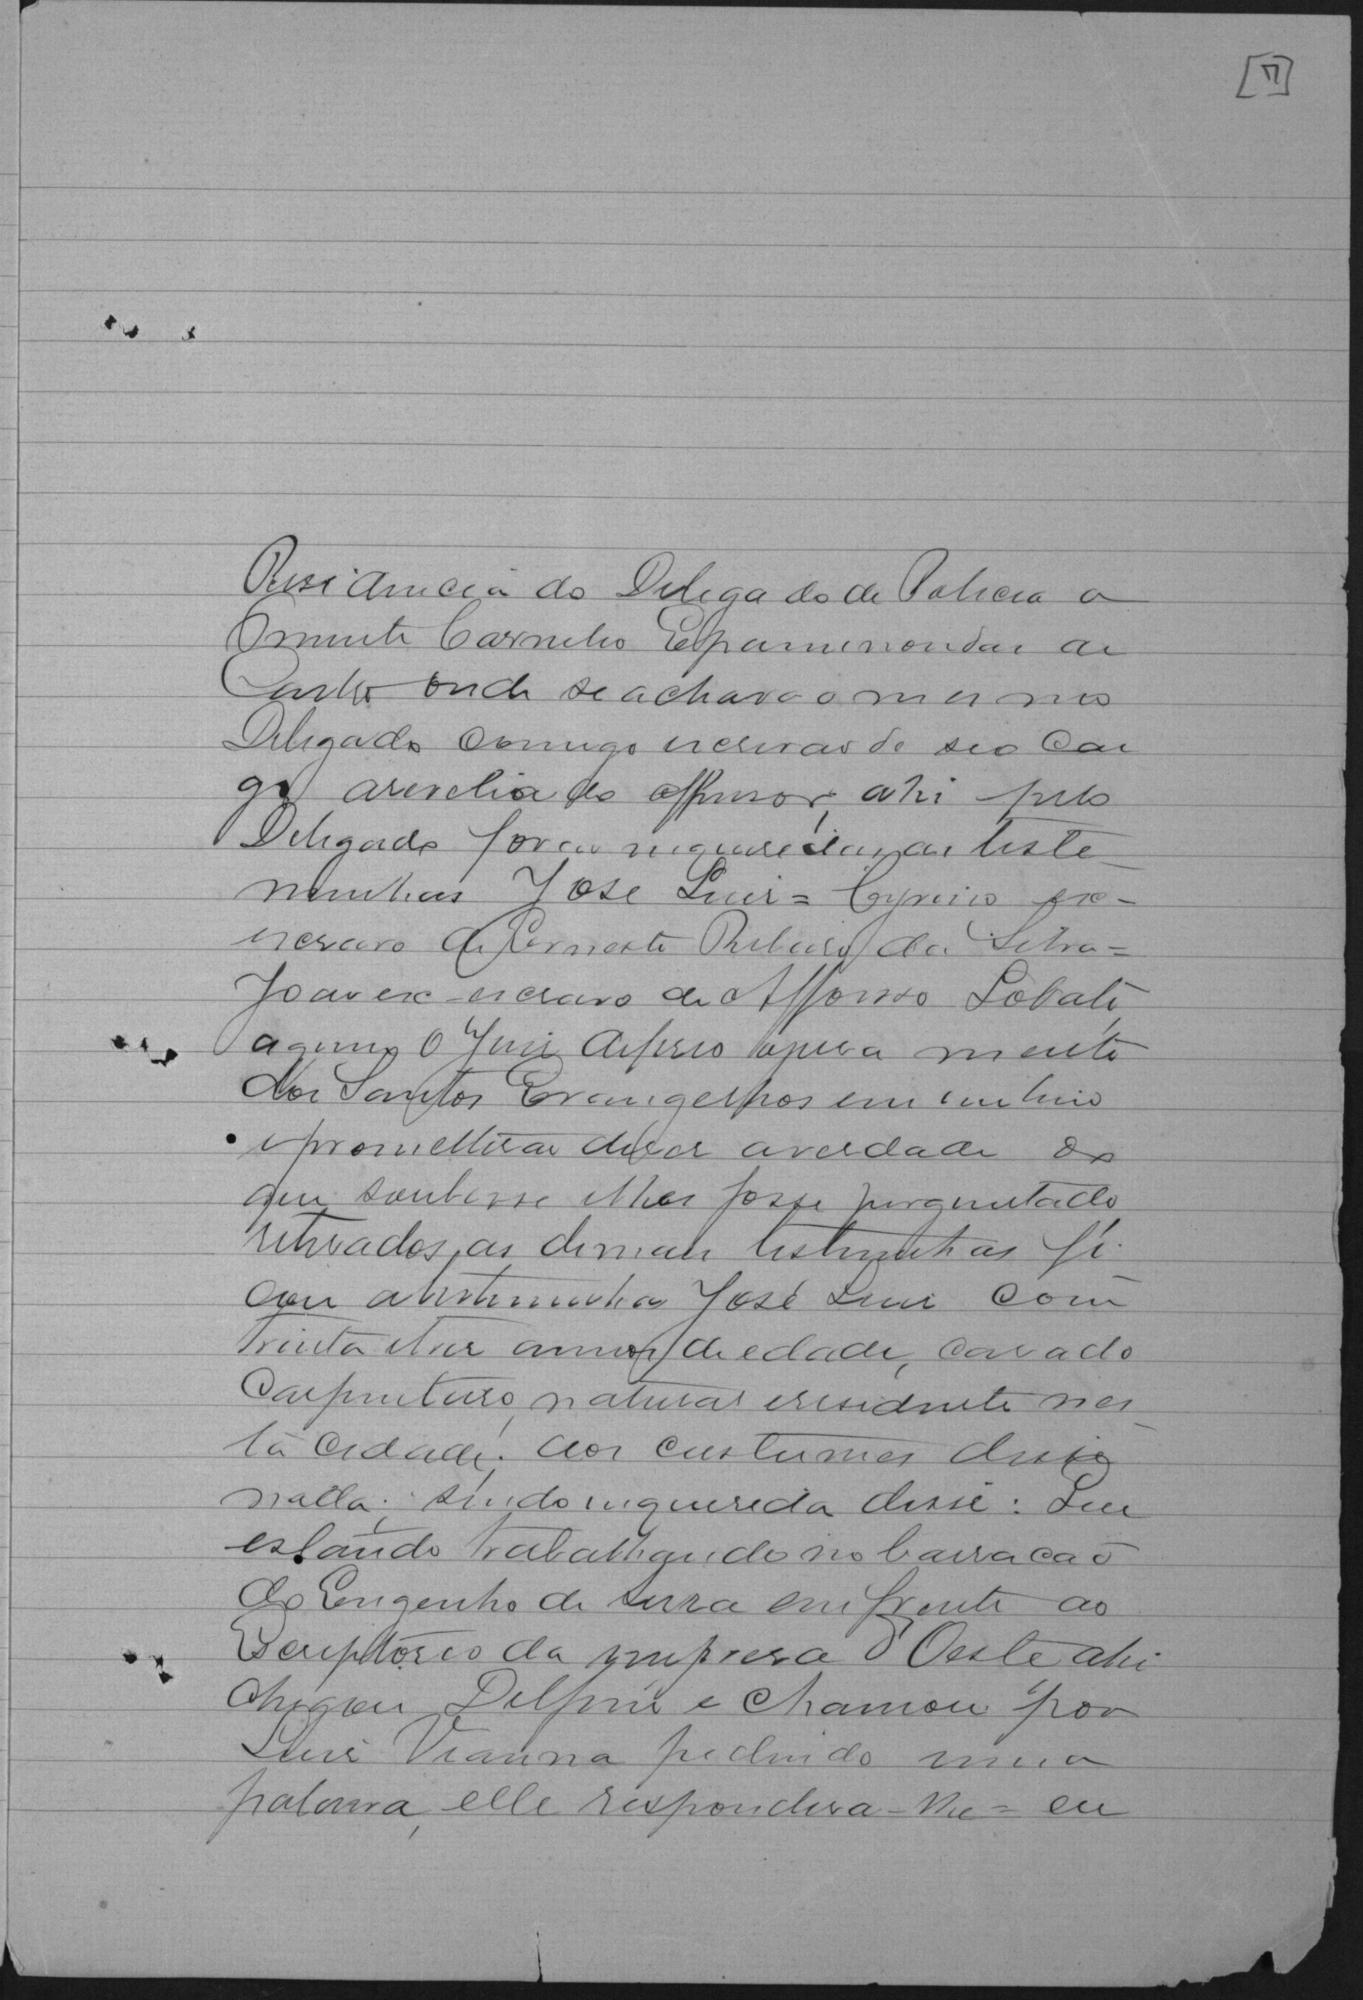 [7]
Residencia do Delegado de Policia o
Carneiro Epaminondas de
Castro onde se achava o mesmo
Delegado comigo escrivão de seo Car
go arevelia do offensor, ahi pelo
Delegado foram inqueridas as teste
munhas José Luis = Cyrino ex-
escravo de Ernesto Ribeiro da Silva =
João ex-escravo de Affonso Lobato
aquem o Juis deferio o
dos Santos Evangelhos em um livro
e prometterão diser averdade do
que soubesse e lhes fosse perguntado
retirados as demais testemunhas fi
cou atestemunha José Luis com
trinta e tres annos de edade, casado
Carpinteiro, natural e residente nes
ta cidade; aos custumes disse
nada; sendo inquerida disse: Que
estando trabalhando no barracão
do Engenho de serra em frente ao
Escriptorio da impresa d'Oeste ahi
chegou Delfim e chamou por
Luis Vianna pedindo uma
palavra, elle respondera-lhe = eu